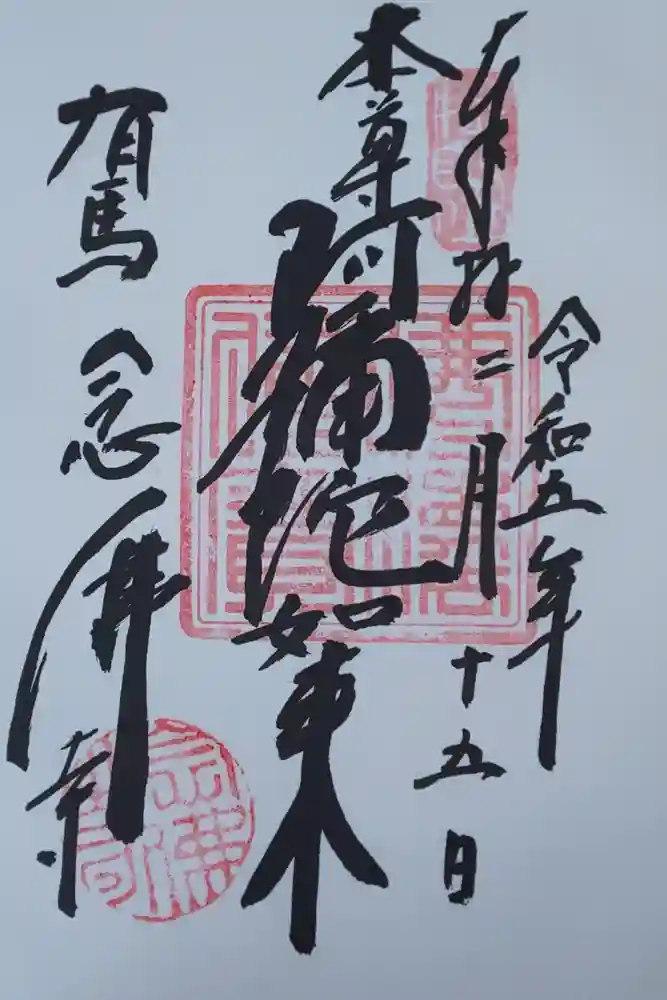 令和五年
奉拝 二月十五日
本尊 阿彌陀如来
有馬 念佛寺